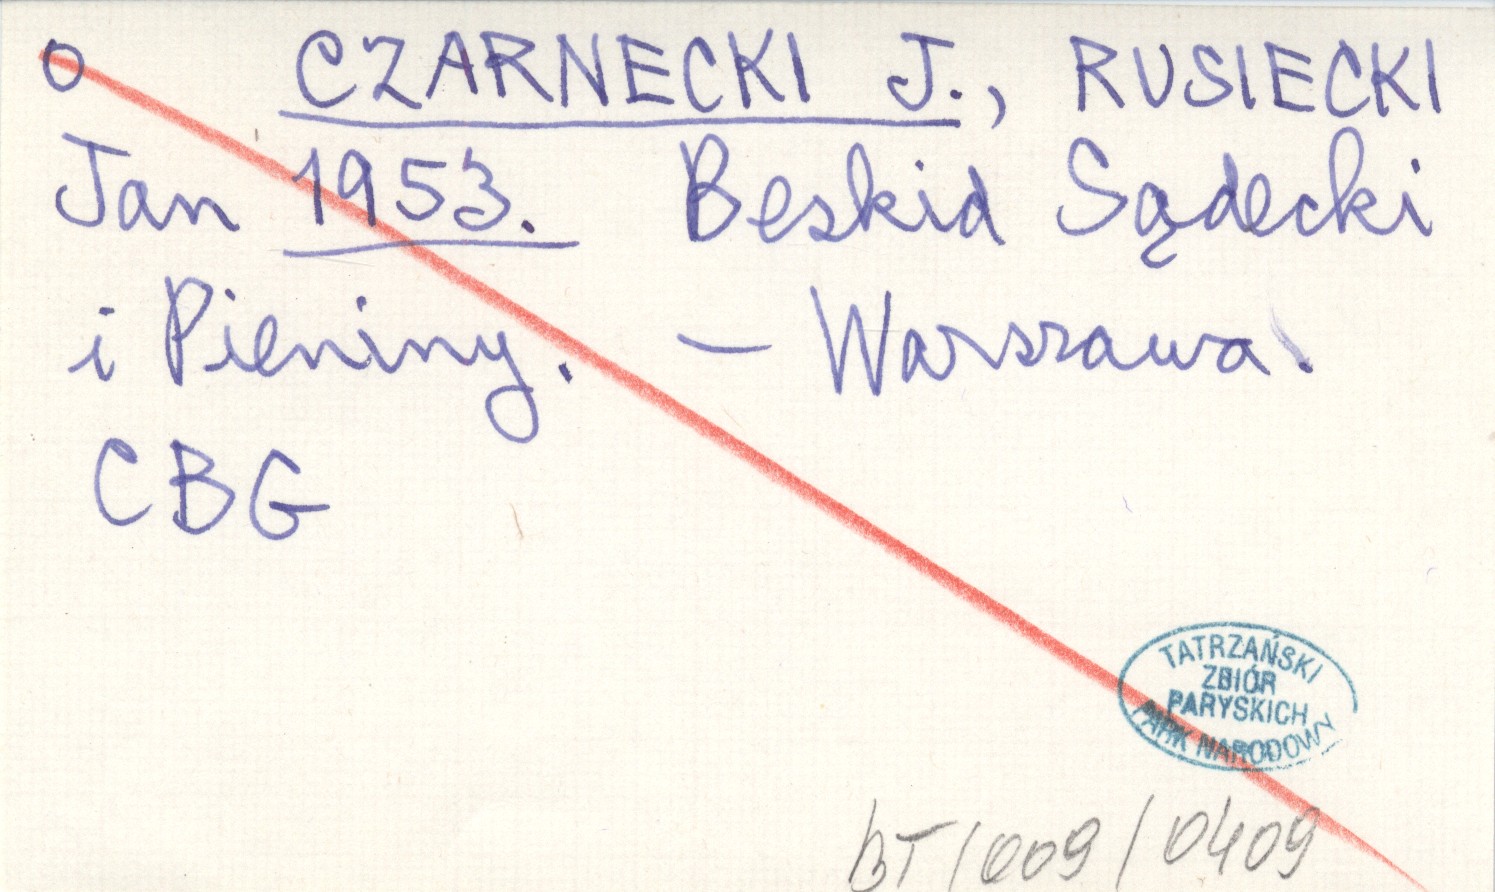 o CZARNECKI J., RUSIECKI
Jan 1953. Beskid Sądecki
i Pieniny. — Warszawa.
CBG
TATRZAŃSKI
ZBIÓR
PARYSKICH
PARK NARODOWY
BT/009/0409